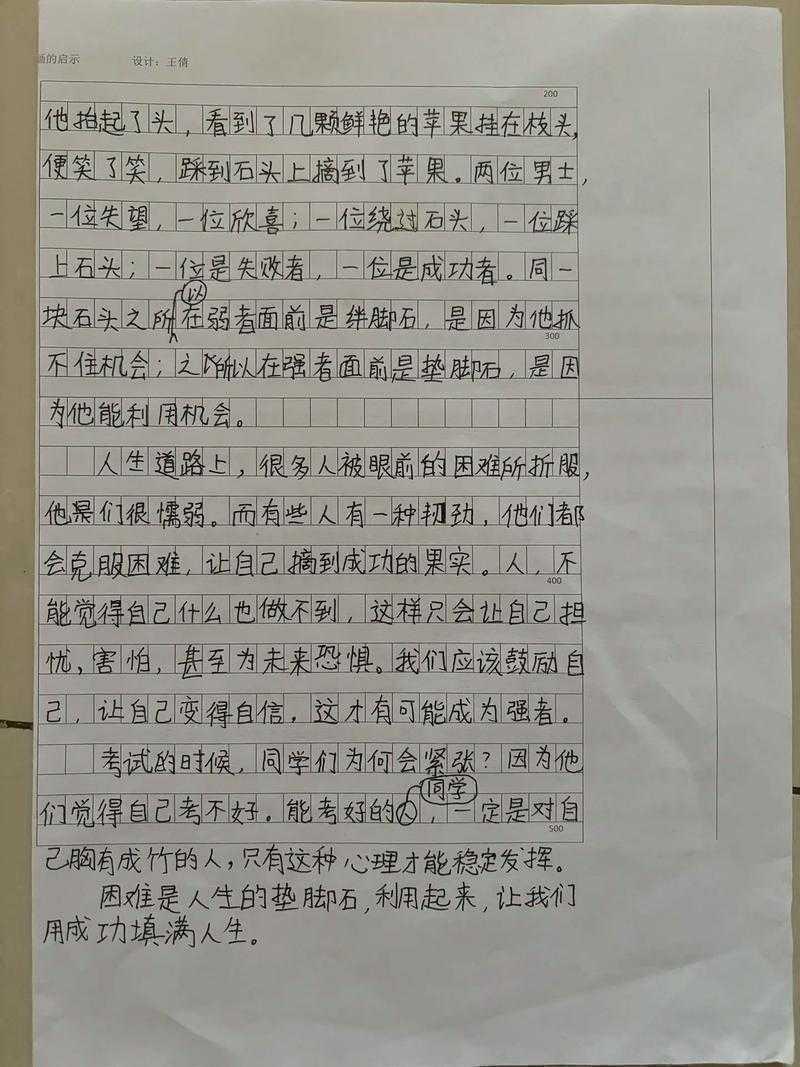 画的启示 设计：王倩
200
他抬起了头，看到了几颗鲜艳的苹果挂在枝头，
便笑了笑，踩到石头上摘到了苹果。两位男士，
一位失望，一位欣喜；一位绕过石头，一位踩
上石头；一位是失败者，一位是成功者。同一
块石头之所以在弱者面前是绊脚石，是因为他抓
300
不住机会；之所以在强者面前是垫脚石，是因
为他能利用机会。
人生道路上，很多人被眼前的困难所折服，
他们很懦弱。而有些人有一种韧劲，他们都
会克服困难，让自己摘到成功的果实。人，不
400
能觉得自己什么也做不到，这样只会让自己担
忧，害怕，甚至为未来恐惧。我们应该鼓励自
己，让自己变得自信，这才有可能成为强者。
考试的时候，同学们为何会紧张？因为他
们觉得自己考不好。能考好的同学，一定是对自
500
己胸有成竹的人，只有这种心理才能稳定发挥。
困难是人生的垫脚石，利用起来，让我们
用成功填满人生。